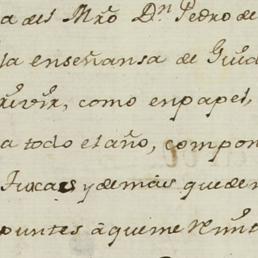 a del Mrõ Dⁿ Pedro de
la enseñansa de Gui
rivir, como en papel,
a todo el año, compon
y demás que de
puntes â que me